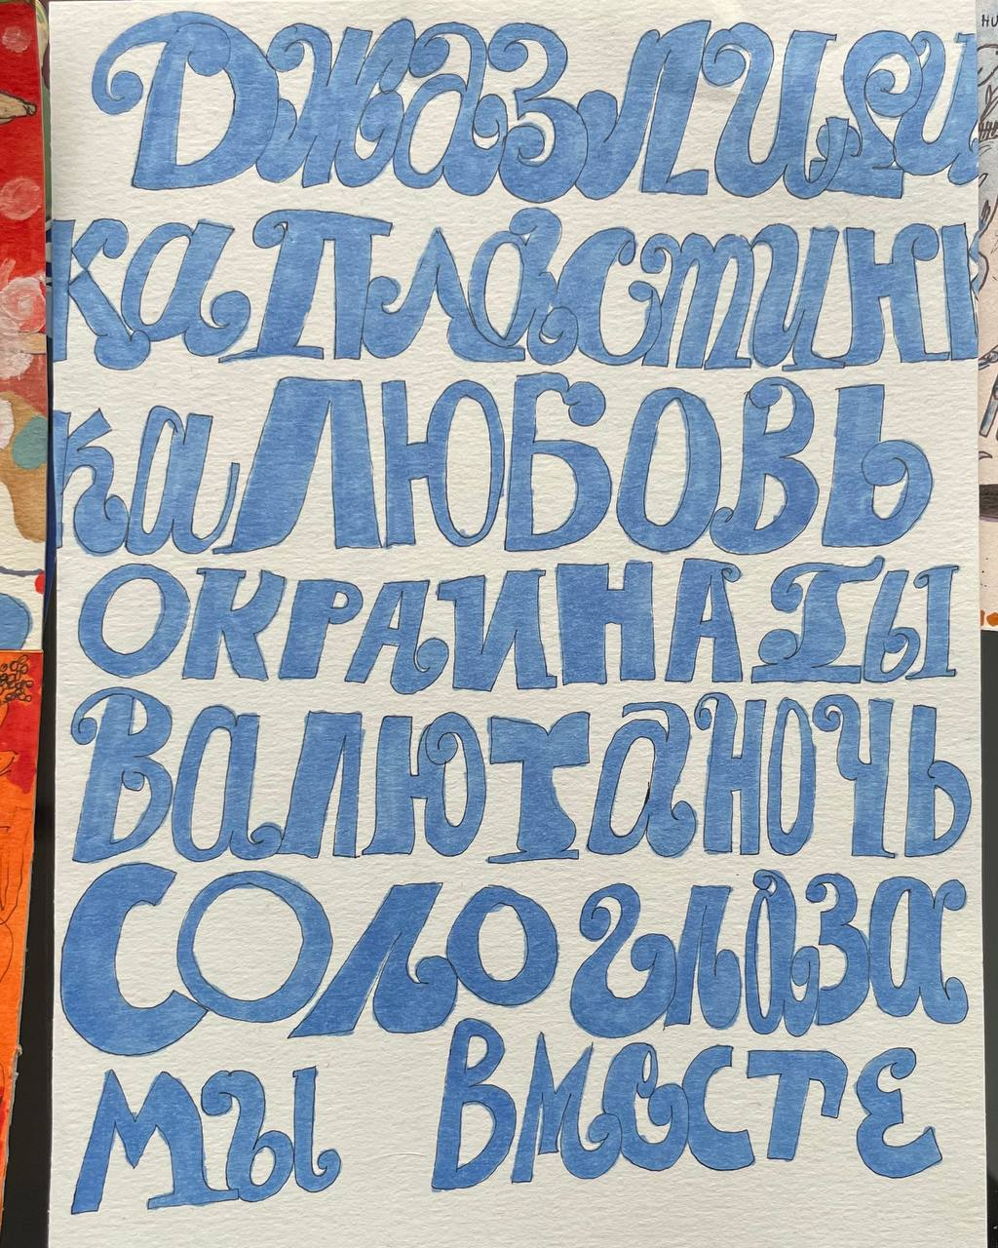 Джаз лири
ка Пластин
ка ЛЮБОВЬ
ОКРАИНА ТЫ
Валюта ночь
Соло глаза
мы вместе